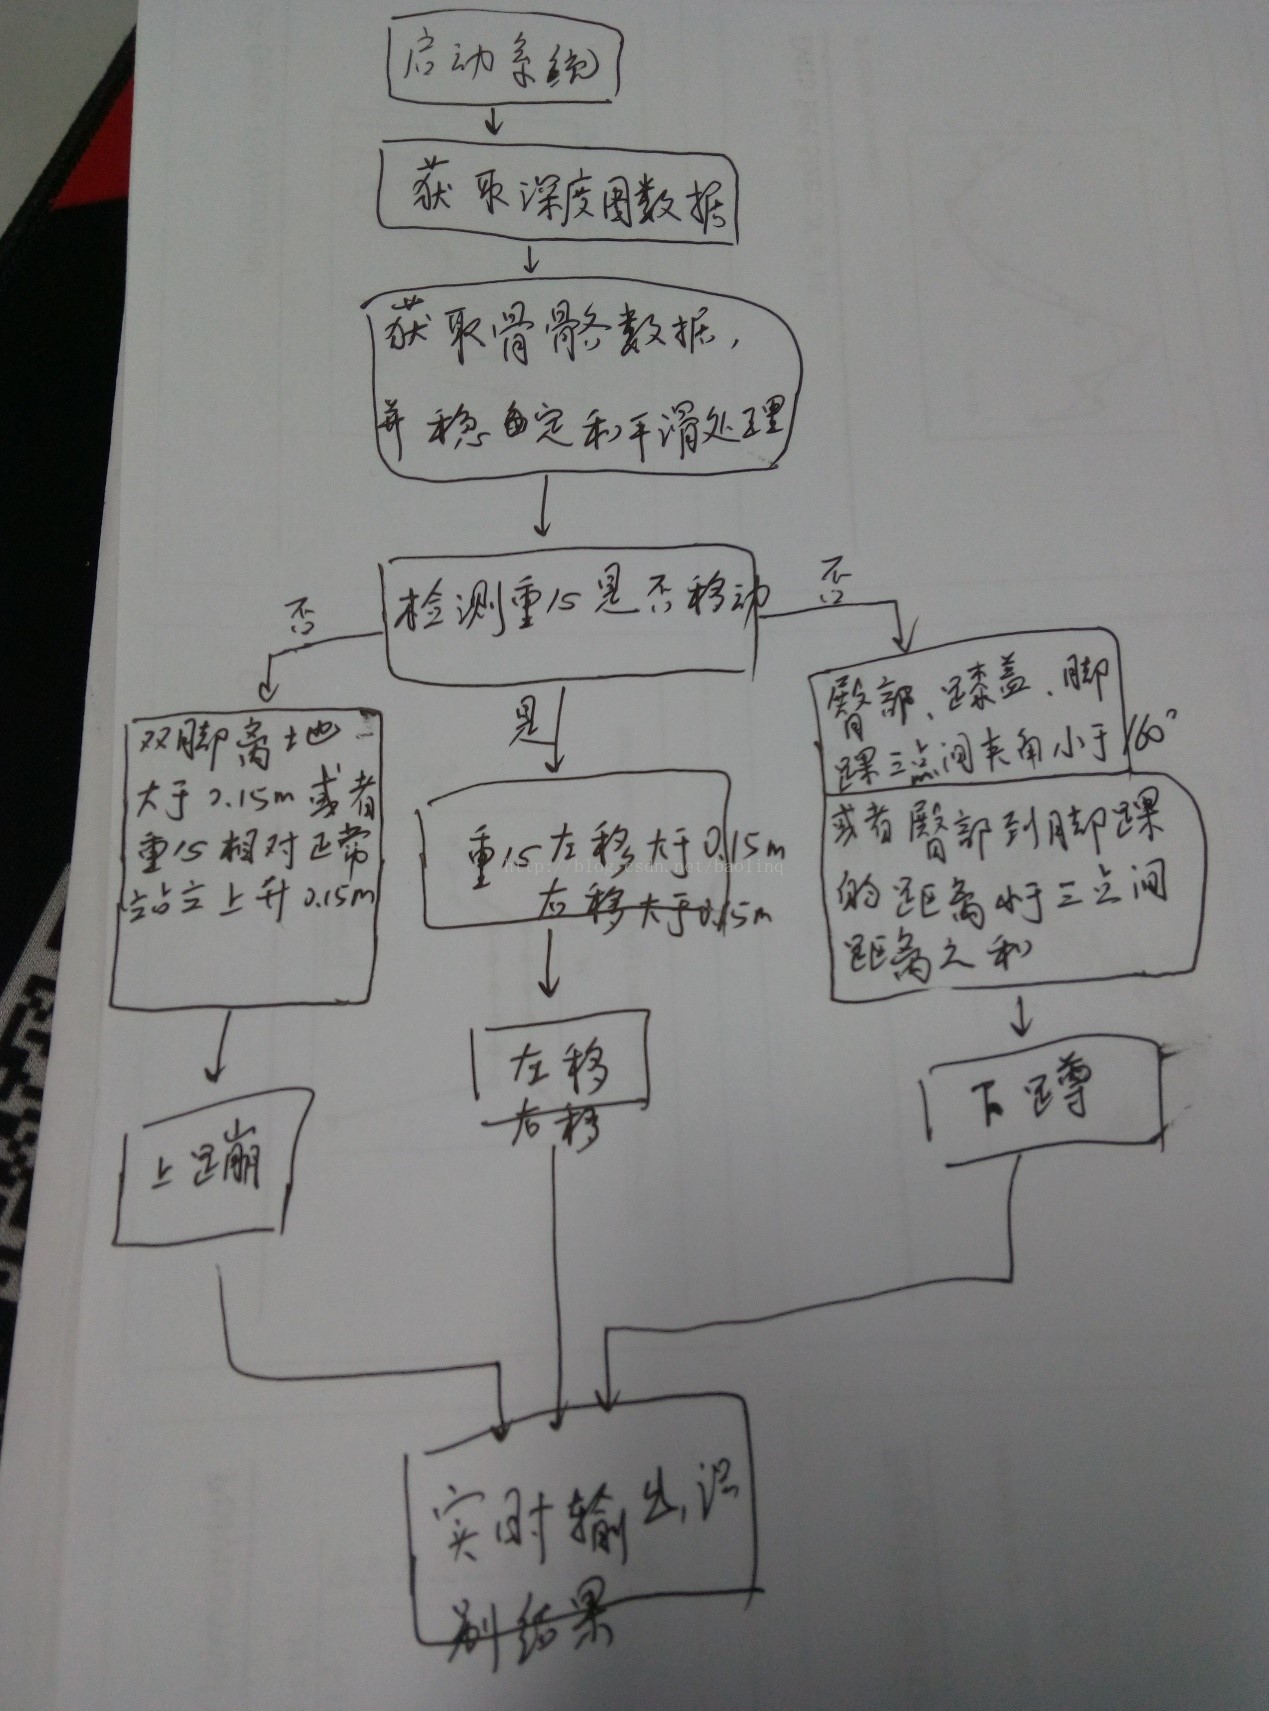 启动系统
获取深度图数据
获取骨骼数据，
并稳定和平滑处理
检测重心是否移动
否
否
是
双脚离地
大于0.15m或者
重心相对正常
站立上升0.15m
重心左移大于0.15m
右移大于0.15m
http://blog.csdn.net/baolinq
臀部、膝盖、脚
踝三点间夹角小于160°
或者臀部到脚踝
的距离小于三点间
距离之和
左移
右移
下蹲
上蹦
实时输出识
别结果